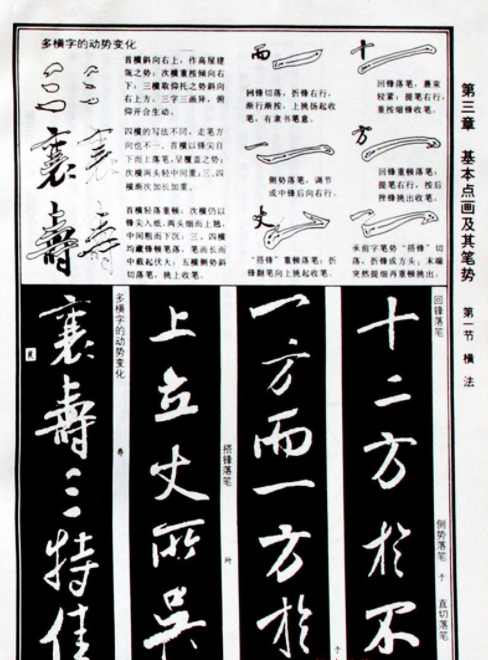 第三章 基本点画及其笔势 第一节 横法
十
回锋落笔，裹束
轻紧；提笔右行，
重按缩锋收笔。
方
回锋重顿落笔；
提笔右行，按后
挫锋挑出收笔。
承前字笔势“搭锋”切
落，折锋或方头；末端
突然提细再重顿挑出。
而
回锋切落；折锋右行，
渐行渐按，上挑扬起收
笔，有隶书笔意。
一
侧势落笔，调节
或中锋后向右行。
丈
“搭锋”重顿落笔；折
锋翻笔向上挑起收笔。
多横字的动势变化
首横斜向右上，作高屋建
瓴之势；次横重按倾向右
下；三横取仰托之势斜向
右上方。三字三画异，俯
仰开合生动。
三三
襄
四横的写法不同，走笔方
向也不一。首横以锋尖自
下而上落笔，呈覆盖之势；
次横两头轻中间重；三、四
横渐次加长加重。
壽
首横轻落重顿；次横仍以
锋尖入纸，两头细而上翘，
中间粗而下沉；三、四横
均藏锋顿笔落，笔画长而
中截起伏大；五横侧势斜
切落笔，挑上收笔。
回锋落笔
侧势落笔
于
直切落笔
十二方於不
一方而一方於
搭锋落笔
所
上立丈所吴
多横字的动势变化
寿
襄壽三特佳